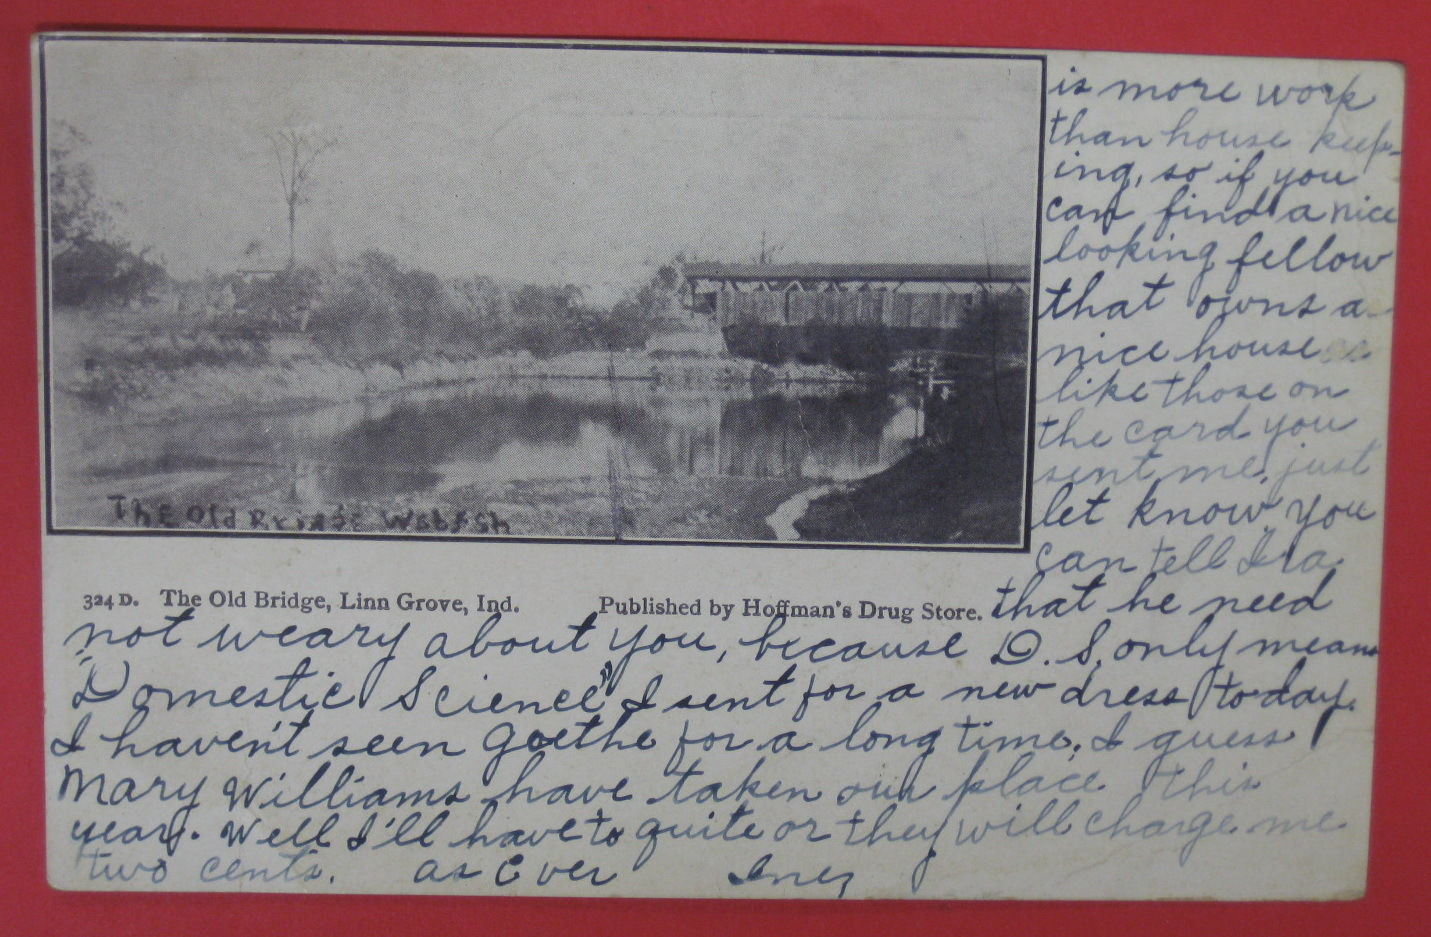 The Old Bridge Wabash
324 D. The Old Bridge, Linn Grove, Ind. Published by Hoffman's Drug Store.
is more work
than house keep-
ing, so if you
can find a nice
looking fellow
that owns a
nice house
like those on
the card you
sent me, just
let know. you
can tell Ira
that he need
not weary about you, because D. S. only means
"Domestic Science" I sent for a new dress to-day.
I haven't seen Goethe for a long time. I guess
Mary Williams have taken our place this
year. Well I'll have to quite or they will charge me
two cents. as Ever Inez